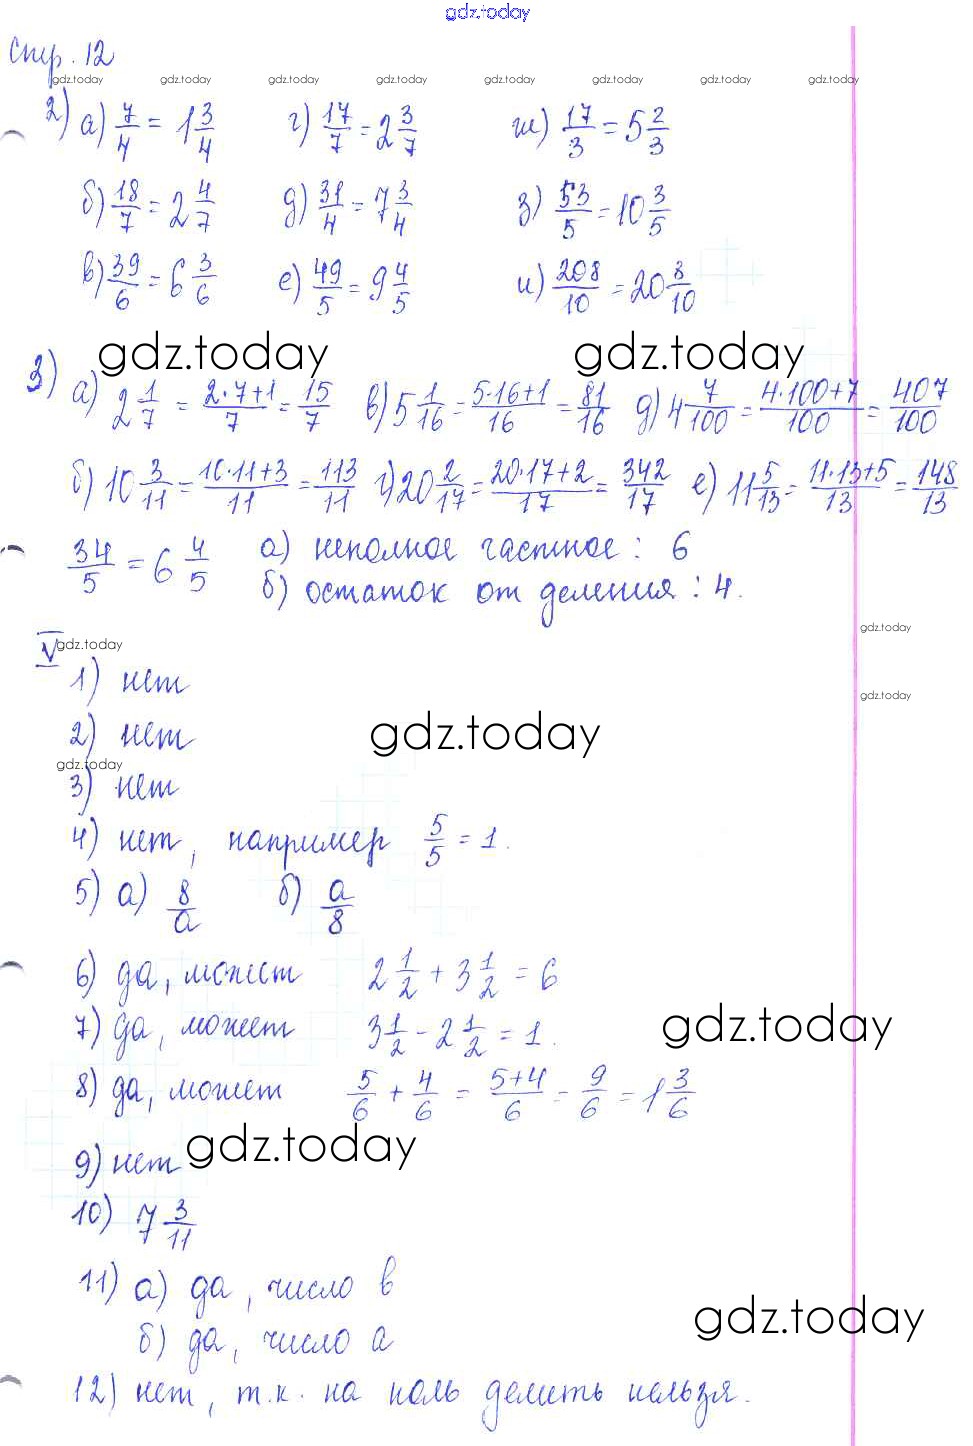 gdz.today
Стр. 12
gdz.today gdz.today gdz.today gdz.today gdz.today gdz.today gdz.today gdz.today
2) а) 7/4 = 1 3/4 г) 17/7 = 2 3/7 ж) 17/3 = 5 2/3
б) 18/7 = 2 4/7 д) 31/4 = 7 3/4 з) 53/5 = 10 3/5
в) 39/6 = 6 3/6 е) 49/5 = 9 4/5 и) 208/10 = 20 8/10
gdz.today gdz.today
3) а) 2 1/7 = 2·7+1/7 = 15/7 в) 5 1/16 = 5·16+1/16 = 81/16 д) 4 7/100 = 4·100+7/100 = 407/100
б) 10 3/11 = 10·11+3/11 = 113/11 г) 20 2/17 = 20·17+2/17 = 342/17 е) 11 5/13 = 11·13+5/13 = 148/13
34/5 = 6 4/5 а) неполное частное: 6
б) остаток от деления: 4.
gdz.today
V gdz.today
1) нет
gdz.today
2) нет gdz.today
gdz.today
3) нет
4) нет, например 5/5 = 1.
5) а) 8/а б) а/8
6) да, может 2 1/2 + 3 1/2 = 6
7) да, может 3 1/2 - 2 1/2 = 1. gdz.today
8) да, может 5/6 + 4/6 = 5+4/6 = 9/6 = 1 3/6
gdz.today
9) нет
10) 7 3/11
11) а) да, число в
gdz.today
б) да, число а
12) нет, т.к. на ноль делить нельзя.